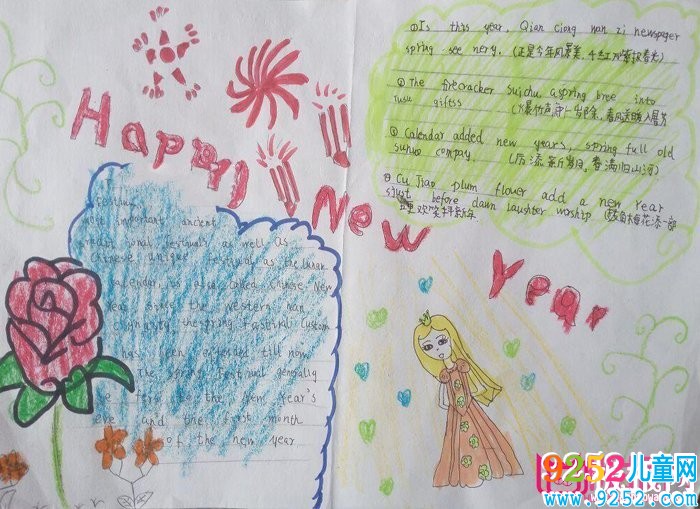 Happy New Year
①Is this year, Qian Ciong wan zi newspaper
spring see nery. (正是今年风景美,千红万紫报春光)
② The firecracker suichu, aspring bree into
tusu giftss (爆竹声中一岁除,春风送暖入屠苏
③ Calendar added new years, spring full old
sunwo compay. (历添新岁月,春满旧山河)
④ Cu Jiao plum flower add a new Year
just before dawn laughter worship
欢笑拜新年
Festival
most important ancient
traditional festivals as well as
Chinese unique festival as the lunar
calendar, is also called Chinese New
Year
changing the Spring Festival custom
has been extended till now
The Spring Festival generally
refers to the New Year's
eve and the first month
of the new year
9252儿童网
www.9252.com